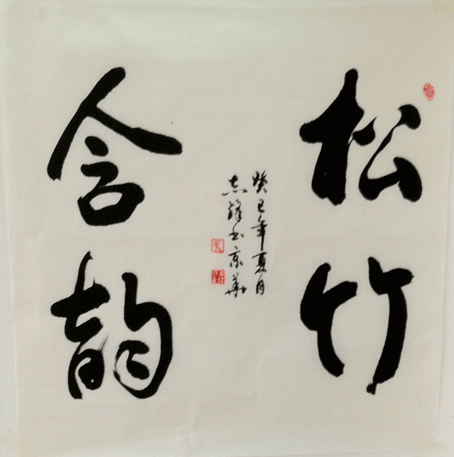 松竹
含韵
癸巳年夏月
志强书京华